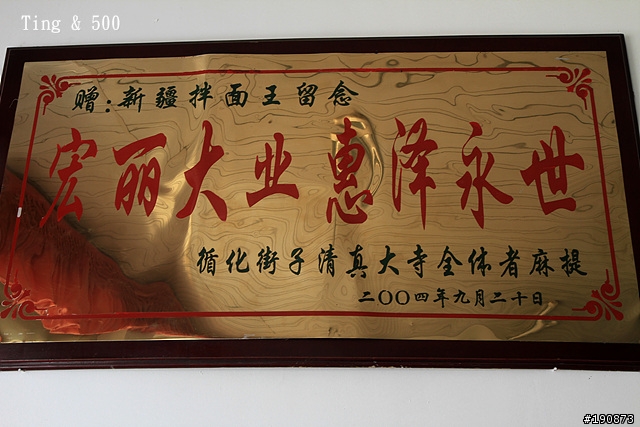 Ting & 500
赠:新疆拌面王留念
宏丽大业惠泽永世
循化街子清真大寺全体者麻提
二〇〇四年九月二十日
#190873